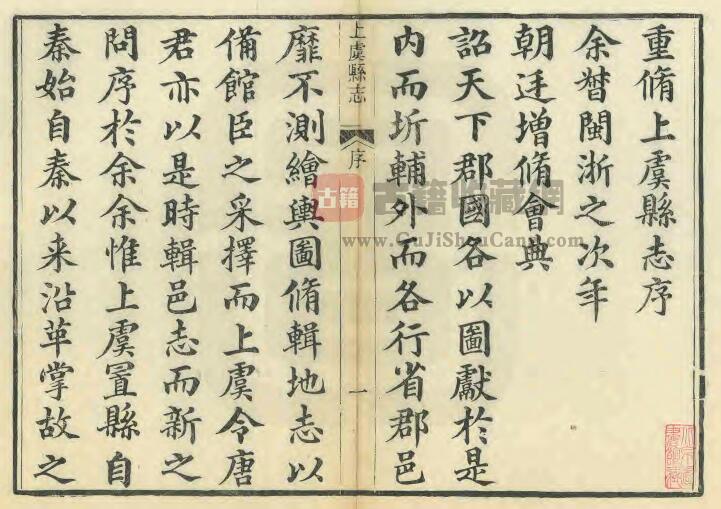 重脩上虞縣志序
余督閩浙之次年
朝廷增脩會典
詔天下郡國各以圖獻於是
內而圻輔外而各行省郡邑
上虞縣志
序
一
靡不測繪輿圖脩輯地志以
備館臣之采擇而上虞令唐
君亦以是時輯邑志而新之
問序於余余惟上虞置縣自
秦始自秦以来沿革掌故之
古籍
古籍收藏網
www.GuJiShouCang.com